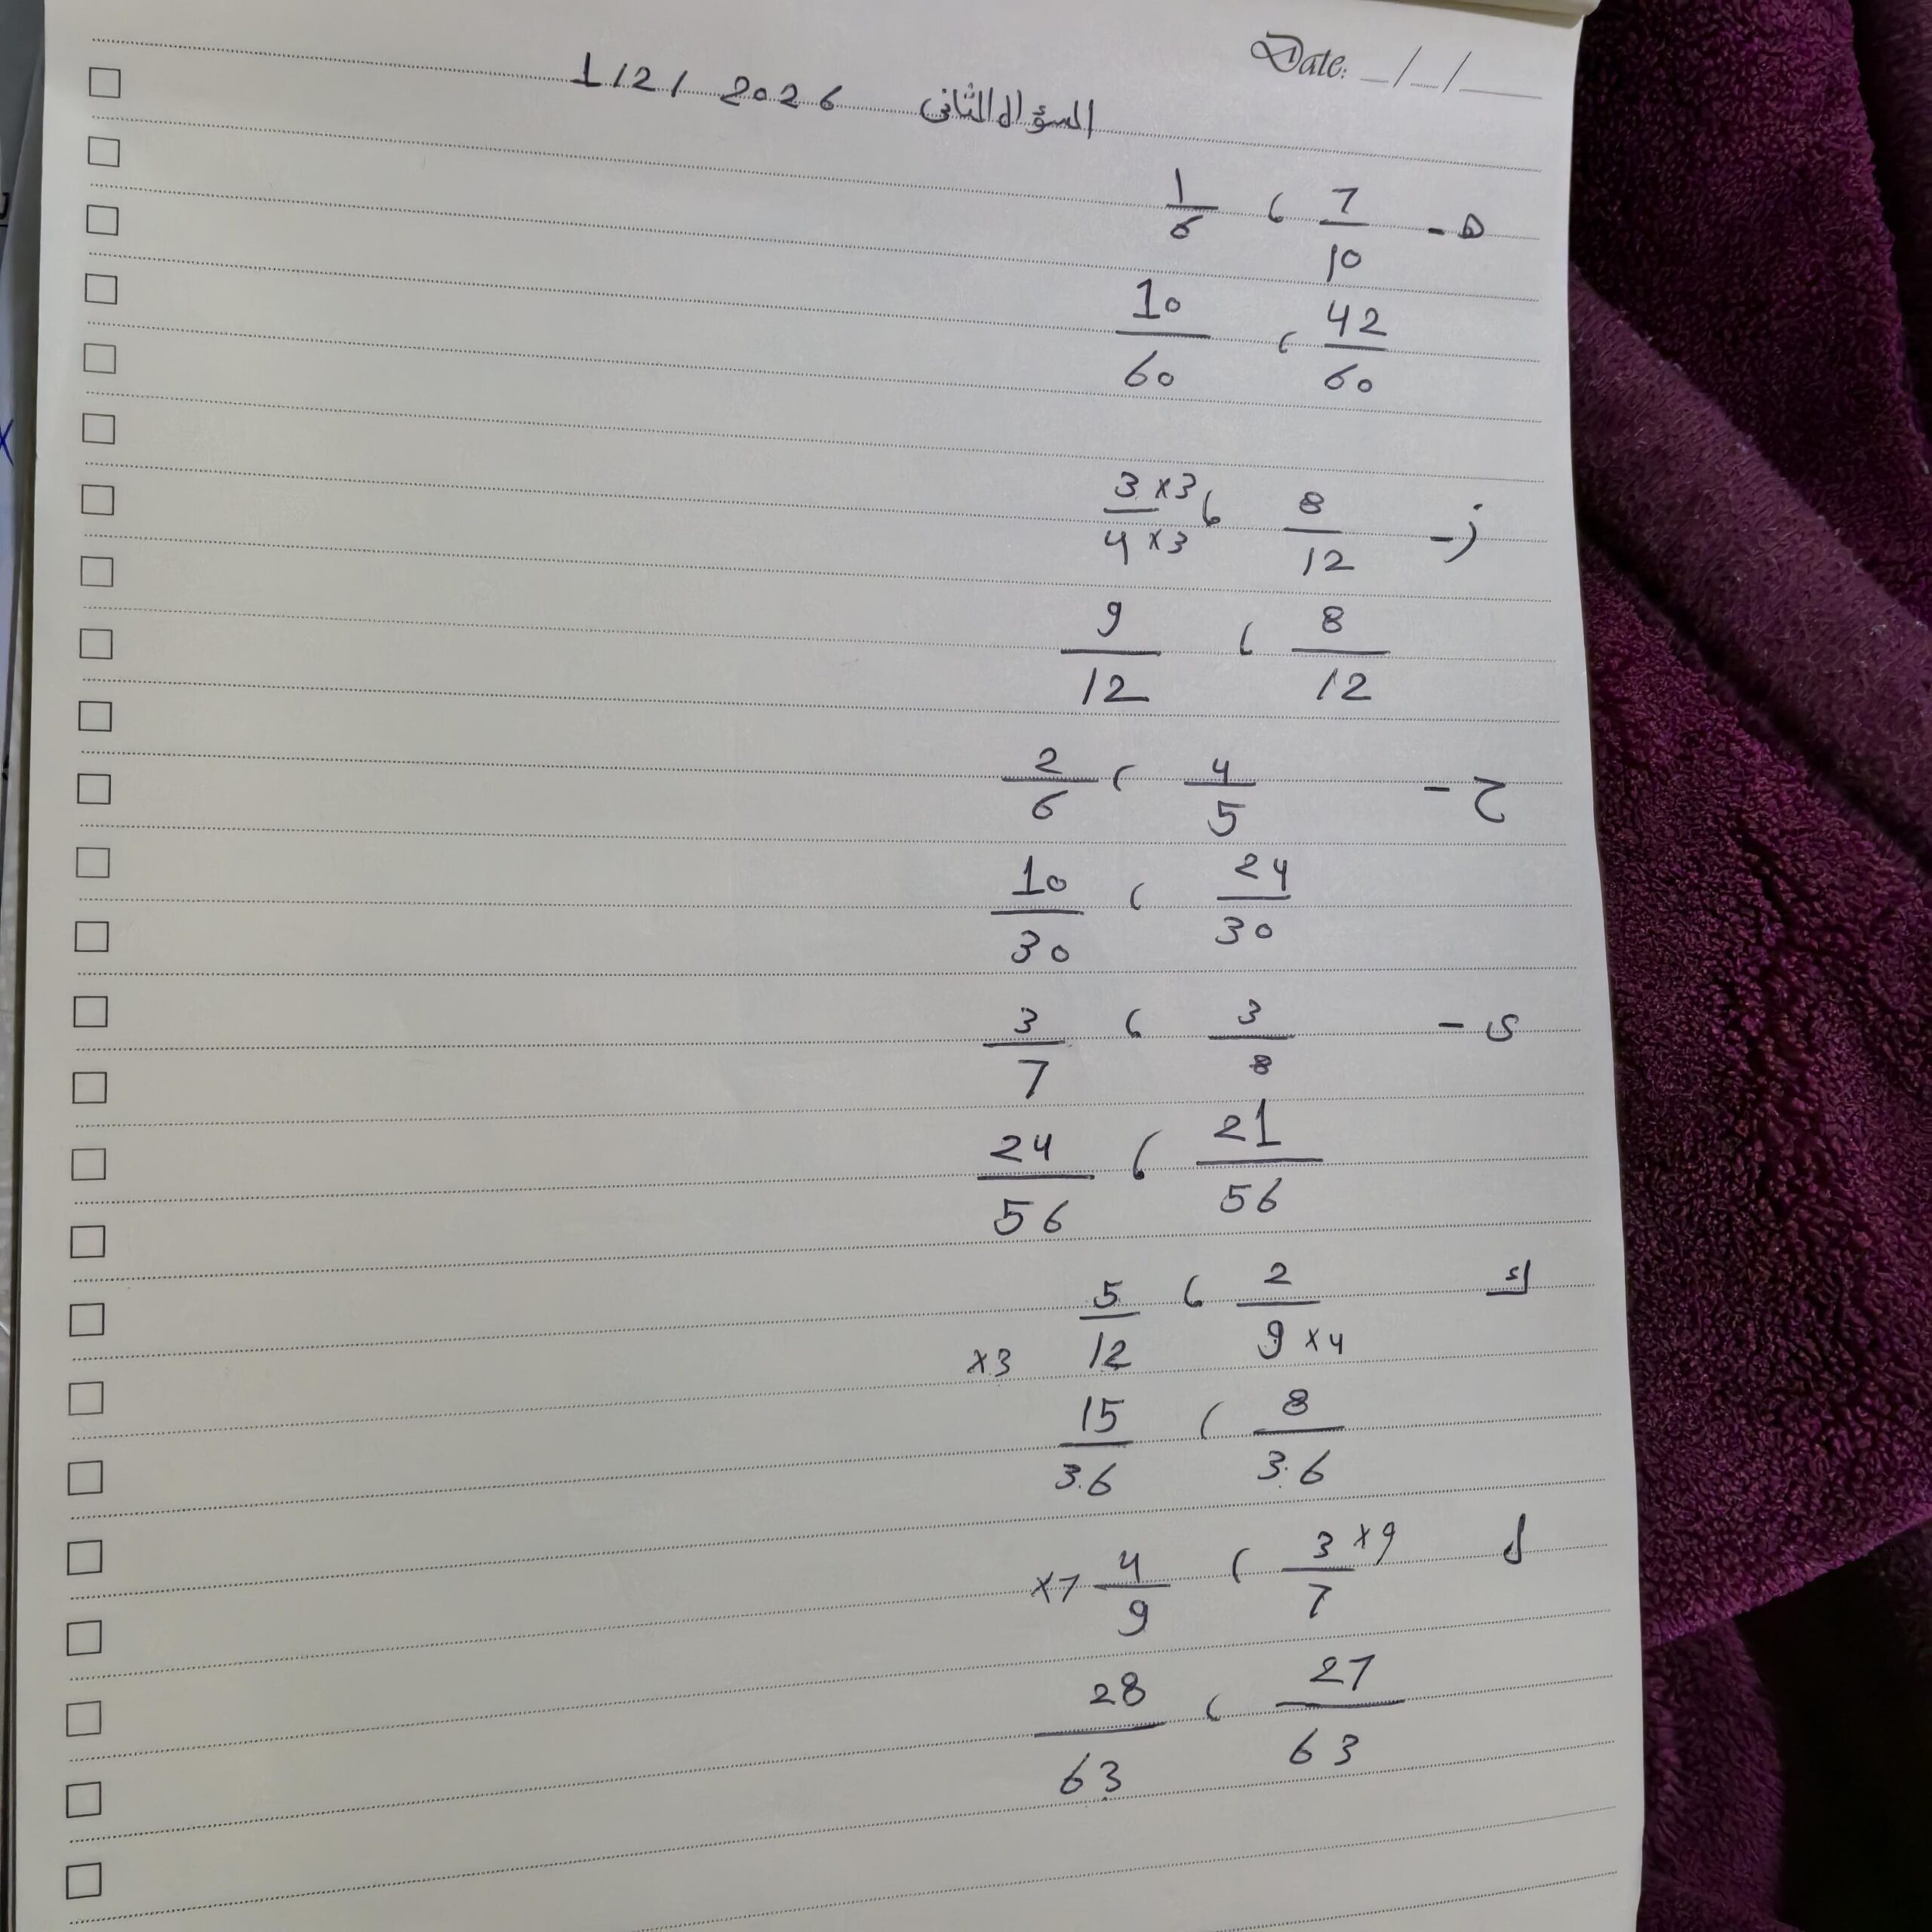 Date: _/_/__
السؤال الثانى 1/2/2026
ه - 7/10 ، 1/6
42/60 ، 10/60
ز - 8/12 ، 3×3/4×3
8/12 ، 9/12
ح - 4/5 ، 2/6
24/30 ، 10/30
ى - 3/8 ، 3/7
21/56 ، 24/56
ك 2/9×4 ، 5/12 ×3
8/36 ، 15/36
ل 3×9/7 ، 4/9 ×7
27/63 ، 28/63